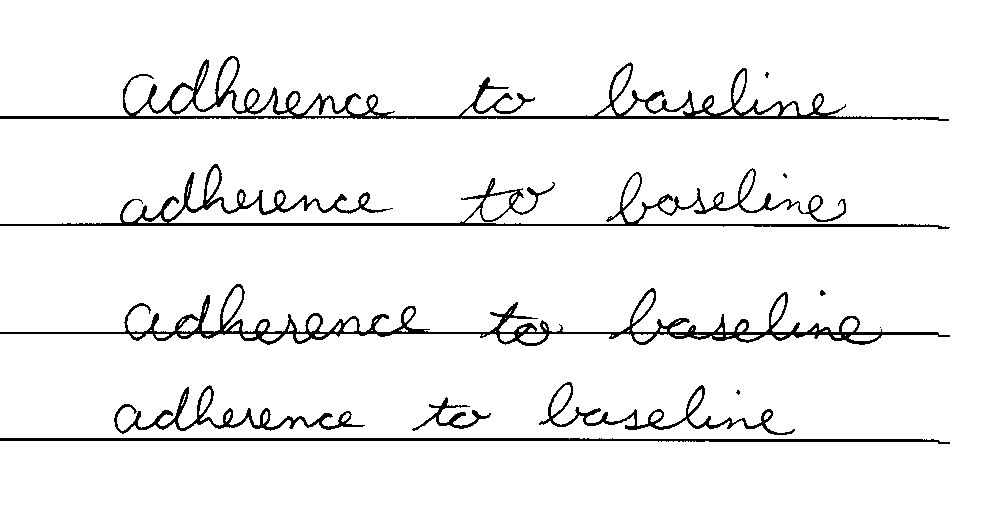 adherence to baseline
adherence to baseline
adherence to baseline
adherence to baseline